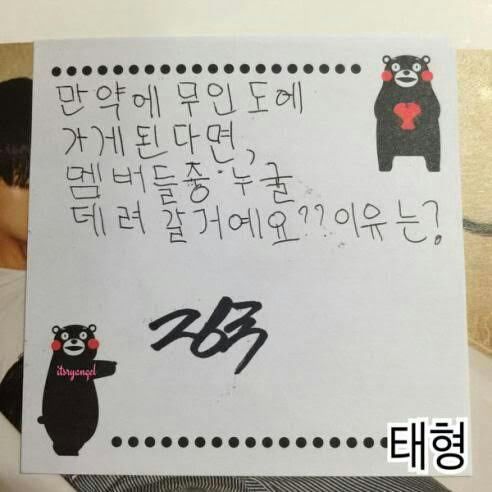 만약에 무인도에
가게 된다면,
멤버들 중 누굴
데려 갈거예요?? 이유는?
정국
itsryangel
태형